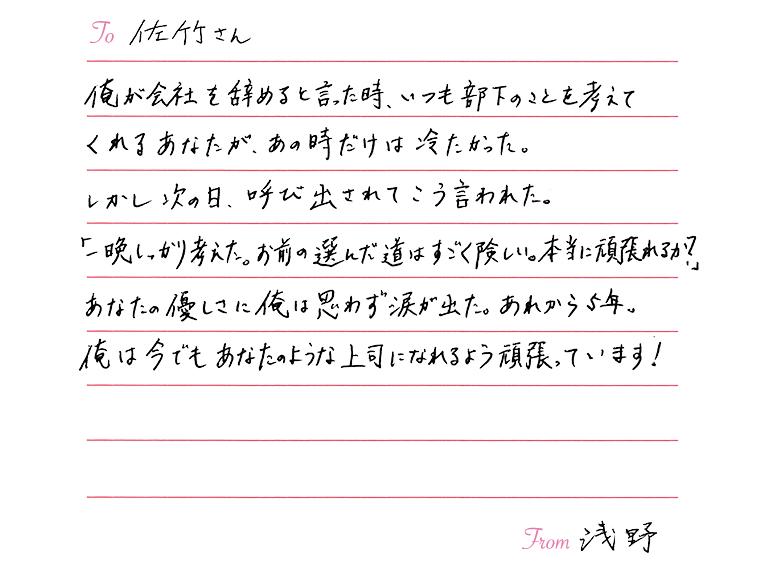 To 佐竹さん
俺が会社を辞めると言った時、いつも部下のことを考えて
くれるあなたが、あの時だけは冷たかった。
しかし次の日、呼び出されてこう言われた。
「一晩しっかり考えた。お前の選んだ道はすごく険しい。本当に頑張れるか?」
あなたの優しさに俺は思わず涙が出た。あれから5年。
俺は今でもあなたのような上司になれるよう頑張っています!
From 浅野